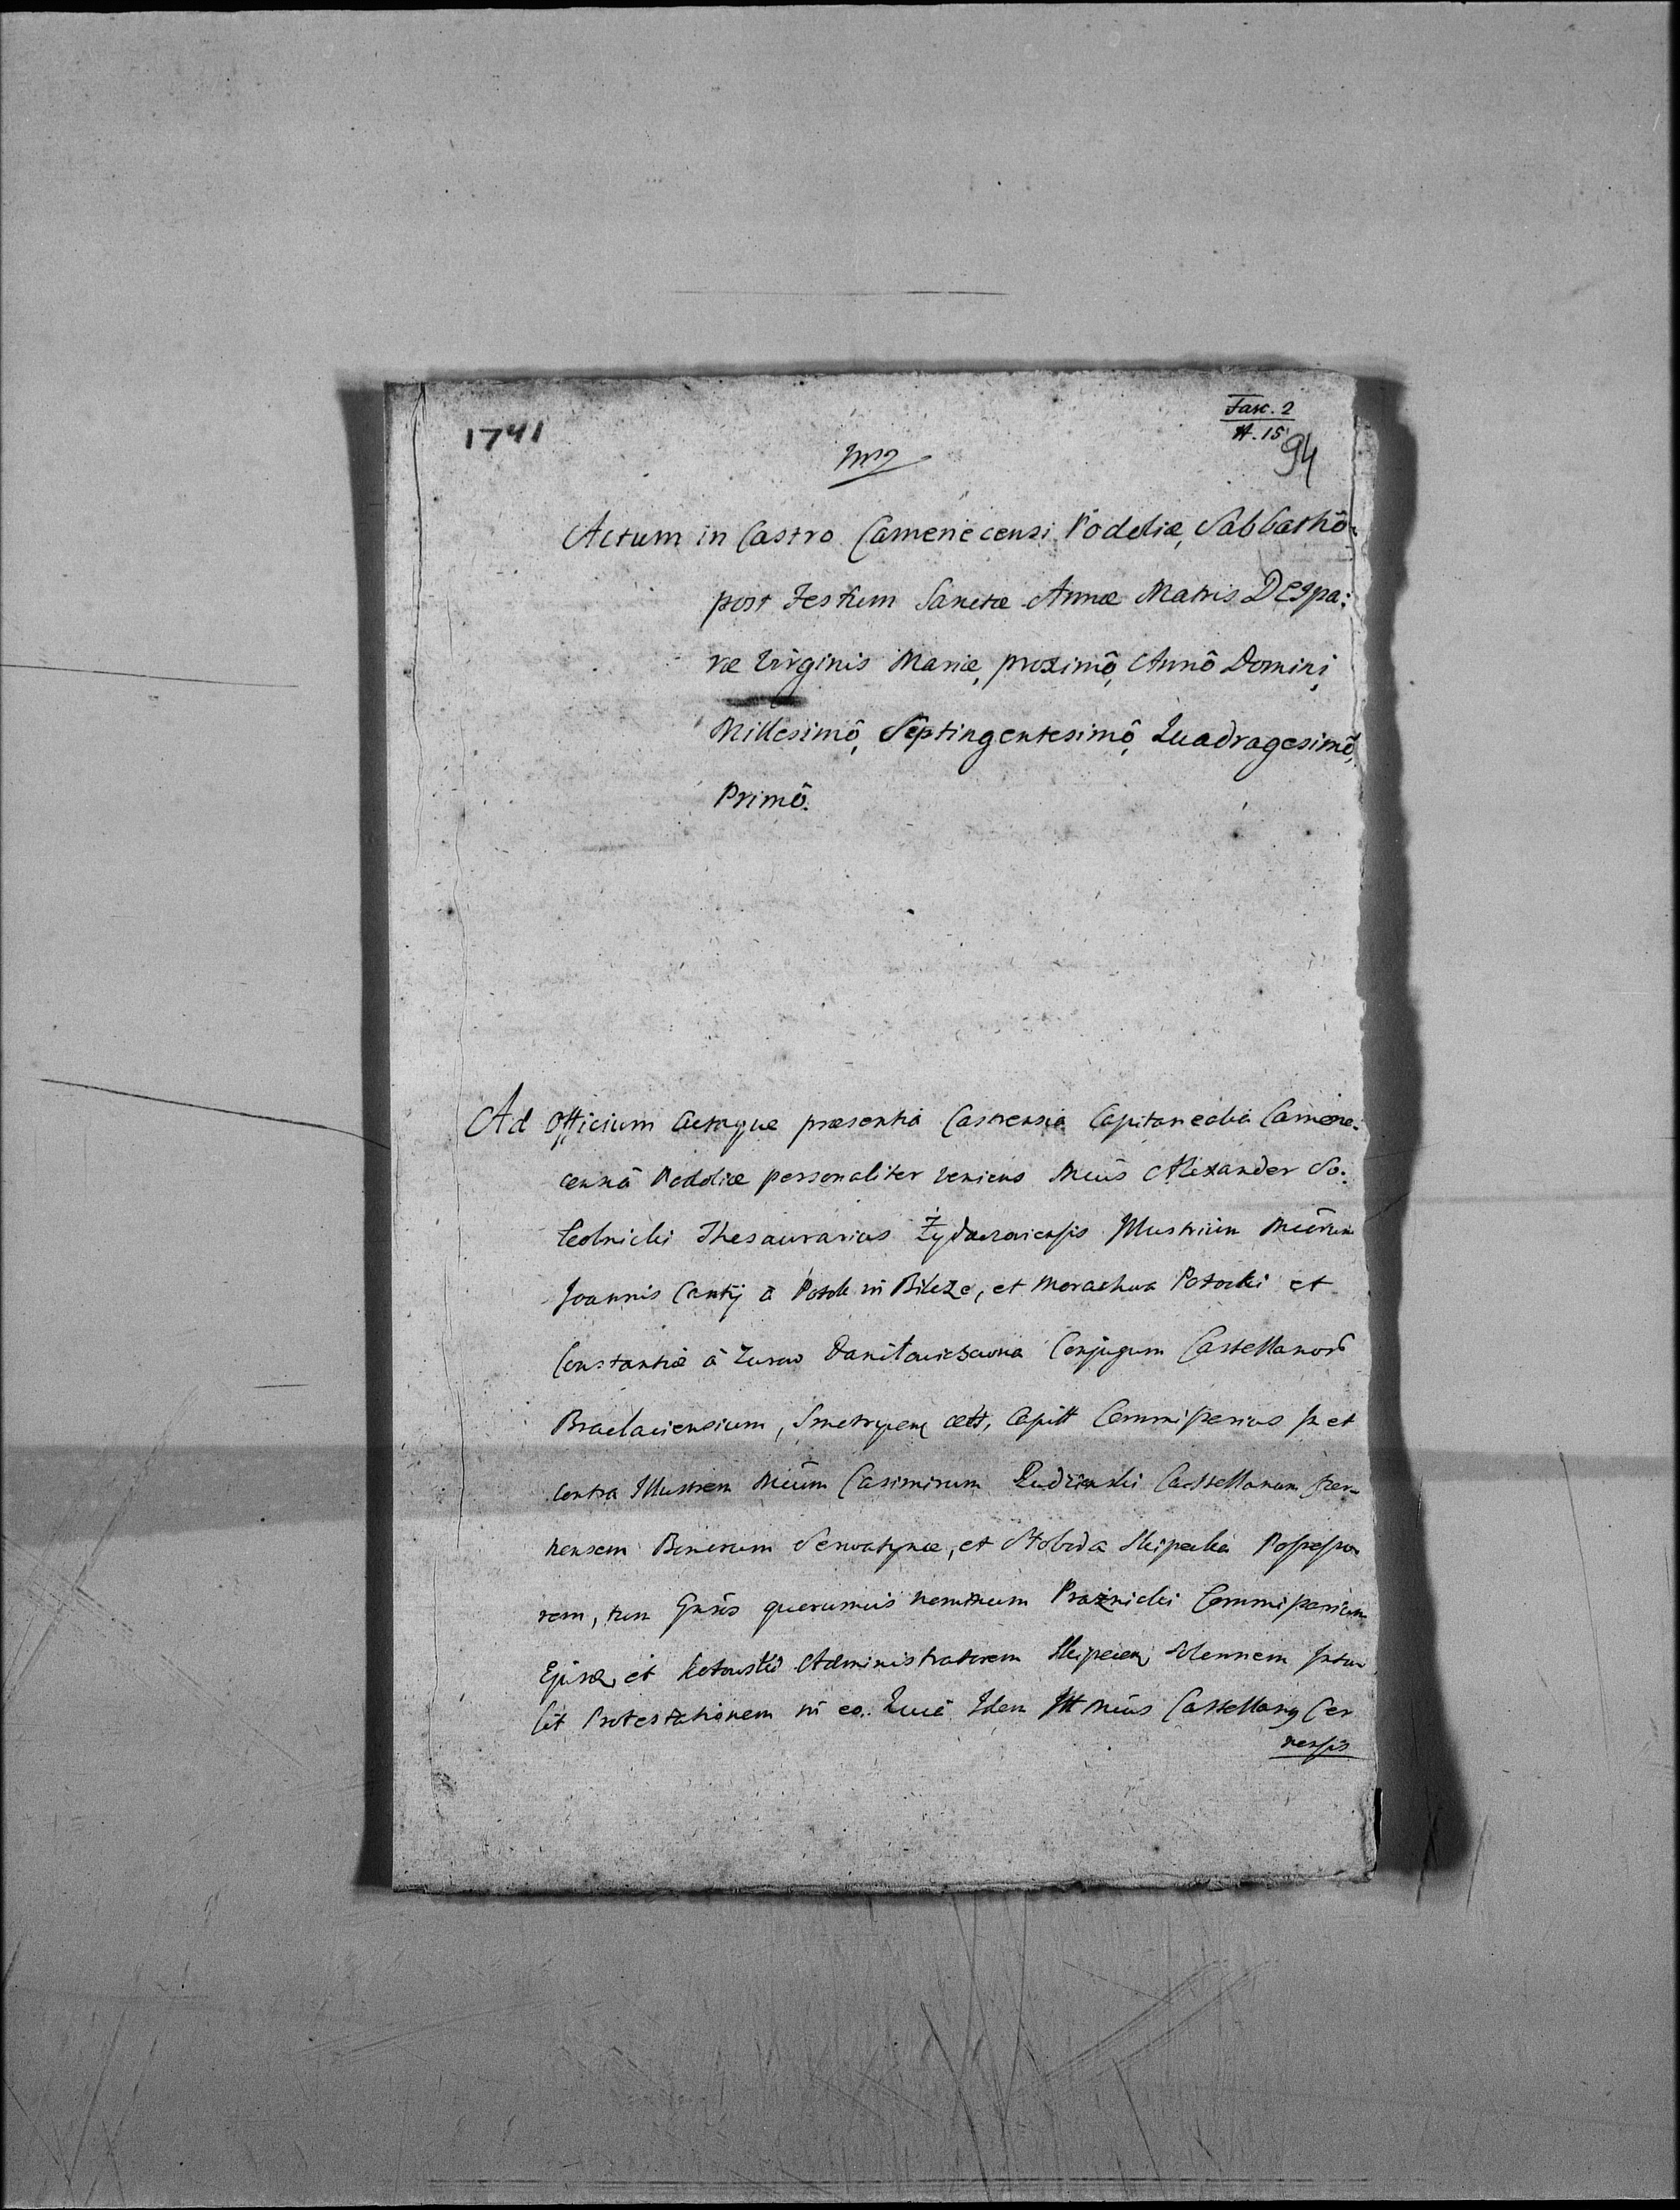 1741
Fasc. 2
N. 15
94
Actum in Castro Camenecensi Podoliæ, Sabbathô
post Festum Sanctæ Annæ Matris Deipa:
ræ Virginis Mariæ, proximô, Annô Domini
Millesimô, Septingentesimô, Quadragesimô,
Primô.
Ad Officium Actaque præsentia Castrensia Capitanealia Camene:
censiâ Podoliæ personaliter veniens Mcus Alexander So:
kolnicki Thesaurarius Żydaczoviensis Illustrium Mcorum
Joannis Cantij à Potok in Bilcze, et Morachwa Potocki et
Constantiæ à Zurow Daniłowiczowna Conjugum Castellanor
Braclaviensium, Smotrycen cett, Capitt Commissarius in et
contra Illustrem Mcum Casimirum Rudzinski Castellanum Czer-
nensem Bonorum Serwatyniec, et Słoboda Skipecka Possesso
rem, tum Gnsos quorumvis nominum Prażnicki Commissarium
Ejusq et Kotowski Administratorem Skipecen, solennem intu
lit Protestationem in eo. Quia Idem Ill Mcus Castellanq Cer
nensis